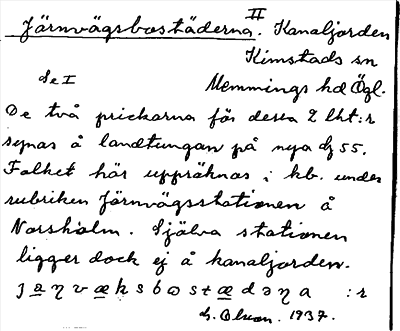 Järnvägsbostäderna. II Kanaljorden
Kimstads sn
Se I Memmings hd Ögl.
De två prickarna för dessa 2 lht:r
synas å landtungan på nya dj 55.
Folket här uppräknas i kb. under
rubriken Järnvägsstationen å
Norsholm. Själva stationen
ligger dock ej å kanaljorden.
:r
Olson. 1937.